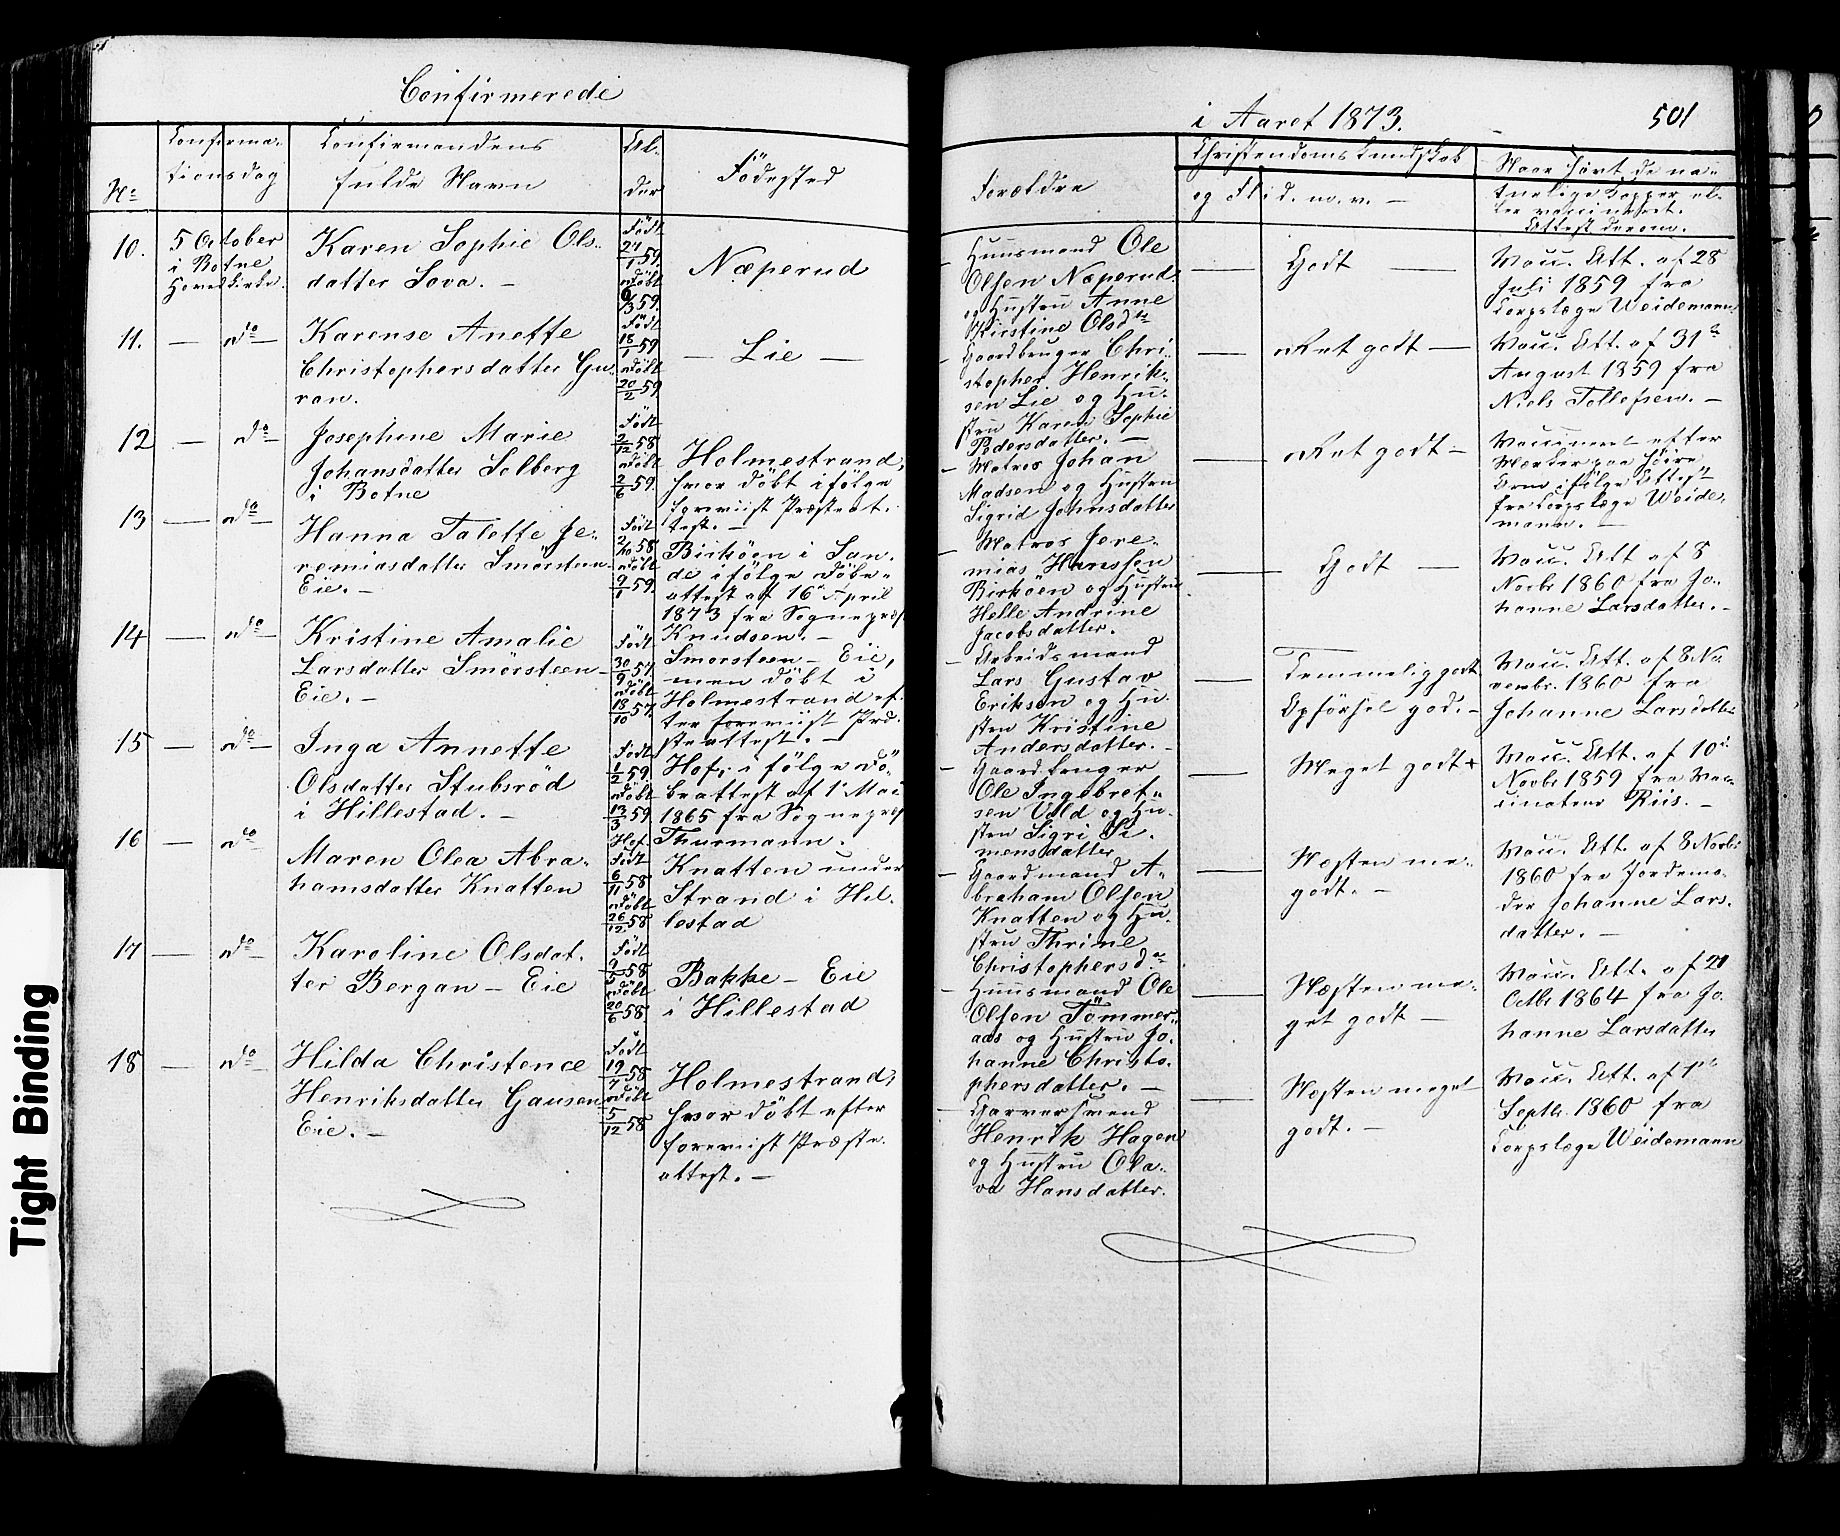 Confirmerede
i Aaret 1873.
501
No
Confirma-
tionsdag
Confirmandens
fulde Navn
Al-
der
Födested
Forældre
Christendoms Kundskab
og Flid. m. v. —
Naar havt de na-
turlige Kopper el-
ler vaccineret.
Attest derom.
10.
5 October
i Botne
Hovedkirke.
Karen Sophie Ols-
datter Sova. —
Född
24/1 59.
Döbt
6/3 59.
Næperud
Huusmand Ole
Olsen Næperud
og Hustru Anne
Kirstine Olsdtr
Godt
Vacc. Att. af 28
Juli 1859 fra
Corpslæge Weidemann
11.
— do —
Karense Anette
Christophersdatter Gu-
ran.
Född
18/1 59
Döbt
20/2 59
— Lie —
Gaardbruger Chri-
stopher Henrik-
sen Lie og Hu-
stru Karen Sophie
Pedersdatter. —
Ret godt —
Vacc. Att. af 31te
August 1859 fra
Niels Tollefsen. —
12
— do —
Josephine Marie
Johansdatter Solberg
i Botne
Född
2/12 58
Döbt
2/6 59.
Holmestrand,
hvor döbt ifölge
foreviist Præsteat-
test. —
Matros Johan
Madsen og Hustru
Sigrid Johnsdatter
Ret godt —
Vaccineret efter
Mærker paa höire
Arm ifölge Attest
fra Corpslæge Weide-
mann. —
13
— do
Hanna Talette Je-
remiasdatter Smörsteen-
Eie. —
Född
2/10 58
Döbt
9/1 59.
Birköen i San-
de ifölge Döbe-
attest af 16 April
1873 fra Sognepræst
Knudsen. —
Matros Jere-
mias Hanssen
Birköen og Hustru
Helle Andrine
Jacobsdatter.
Godt —
Vacc. Att af 8
Novbr 1860 fra Jo-
hanne Larsdatter. —
14
— do
Kristine Amalie
Larsdatter Smörsteen-
Eie. —
Född
30/9 57.
Döbt
18/10 57.
Smorsteen — Eie,
men döbt i
Holmestrand ef-
ter foreviist Præ-
steattest. —
Arbeidsmand
Lars Gustav
Eriksen og Hu-
stru Kristine
Andersdatter. —
Temmelig godt
Opförsel god. —
Vacc. Att. af 8 No-
vembr. 1860 fra
Johanne Larsdatter
15
— do —
Inga Annette
Olsdatter Stubsröd
i Hillestad. —
Född
1/2 59
Döbt
13/3 59
Hof, i fölge Dö-
beattest af 1 Mai
1865 fra Sognepræst
Thurmann.
Gaardbruger
Ole Ingebret-
sen Vald og Hu-
stru Sigri Si-
mensdatter
Meget godt +
Vacc. Att. af 10
Novbr 1859 fra Vac-
cinateur Riis. —
16
— do
Maren Olea Abra-
hamsdatter Knatten
Hof.
Född
6/11 58
Döbt
26/12 58
Knatten under
Strand i Hil-
lestad
Gaardmand A-
braham Olsen
Knatten og Hu-
stru Thrine
Christophersdtr
Næsten me-
godt. —
Vacc. Att. af 8 Novbr
1860 fra Jordemo-
der Johanne Lars-
datter. —
17
— do —
Karoline Olsdat-
ter Bergan — Eie
Född
9/5 58
Döbt
20/6 58
Bakke — Eie
i Hillestad
Huusmand Ole
Olsen Tömmer-
aas og Hustru Jo-
hanne Christo-
phersdatter. —
Næsten me-
get godt —
Vacc. Att. af 21
Octbr 1864 fra Jo-
hanne Larsdatter
18
— do —
Hilda Christence
Henriksdatter Gausen
Eie. —
Född
19/7 58
Döbt
5/12 58
Holmestrand,
hvor döbt efter
foreviist Præste-
attest. —
Garversvend
Henrik Hagen
og Hustru Ola-
va Hansdatter.
Næsten meget
godt. —
Vacc. Att. af 1ste
Septbr. 1860 fra
Corpslæge Weidemann
Tight Binding